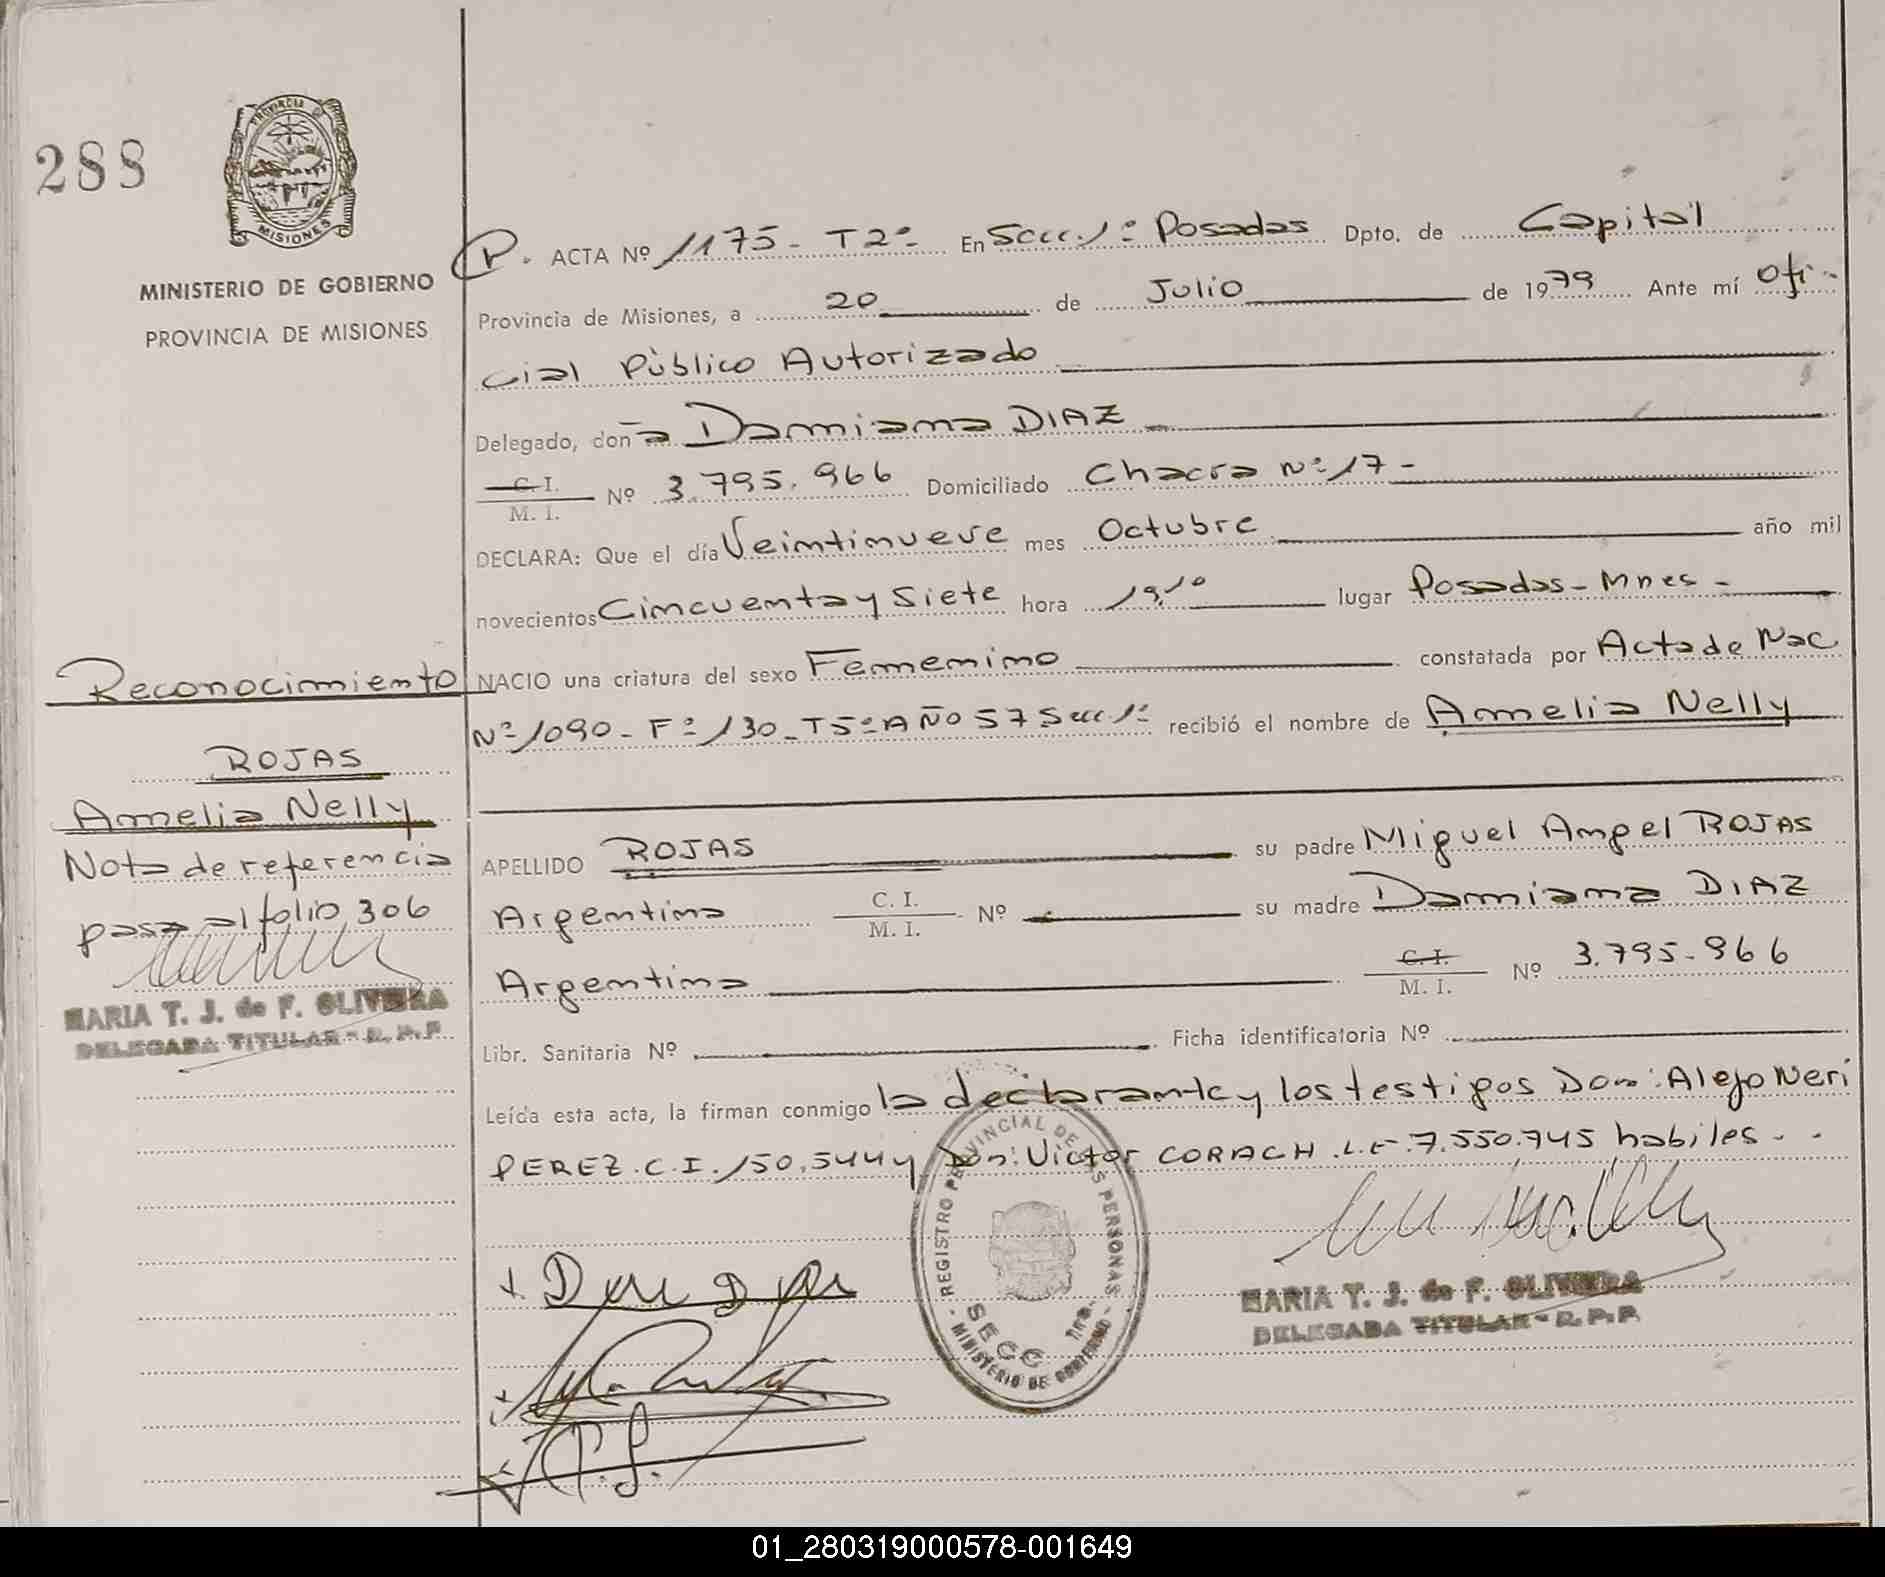 288
PROVINCIA DE
MISIONES
MINISTERIO DE GOBIERNO
PROVINCIA DE MISIONES
P. ACTA Nº 1175 - T2º - En Secc. 1º Posadas Dpto. de Capital
Provincia de Misiones, a 20 de Julio de 1979 Ante mí Ofi-
cial Público Autorizado
Delegado, doña Damiana DIAZ
C. I.
M. I. Nº 3.795.966 Domiciliado Chacra Nº 17 -
DECLARA: Que el día Veintinueve mes Octubre año mil
novecientos Cincuenta y Siete hora 19,10 lugar Posadas - Mnes -
NACIO una criatura del sexo Femenino constatada por Acta de Nac
Nº 1090 - Fº 130 - T5º AÑO 57 Secc 1º recibió el nombre de Amelia Nelly
APELLIDO ROJAS su padre Miguel Angel ROJAS
Argentino C. I. M. I. Nº su madre Damiana DIAZ
Argentina C. I. M. I. Nº 3.795.966
Libr. Sanitaria Nº Ficha identificatoria Nº
Leída esta acta, la firman conmigo la declarante y los testigos Don: Alejo Neri
PEREZ. C.I. 150.544 y Don: Victor CORACH. L.E. 7.550.745 habiles. -
Reconocimiento
ROJAS
Amelia Nelly
Nota de referencia
pasa al folio 306
MARIA T. J. de F. OLIVEIRA
DELEGADA TITULAR - R. P. P.
REGISTRO PROVINCIAL DE LAS PERSONAS
SECC
MINISTERIO DE GOBIERNO
MARIA T. J. de F. OLIVEIRA
DELEGADA TITULAR - R. P. P.
01_280319000578-001649